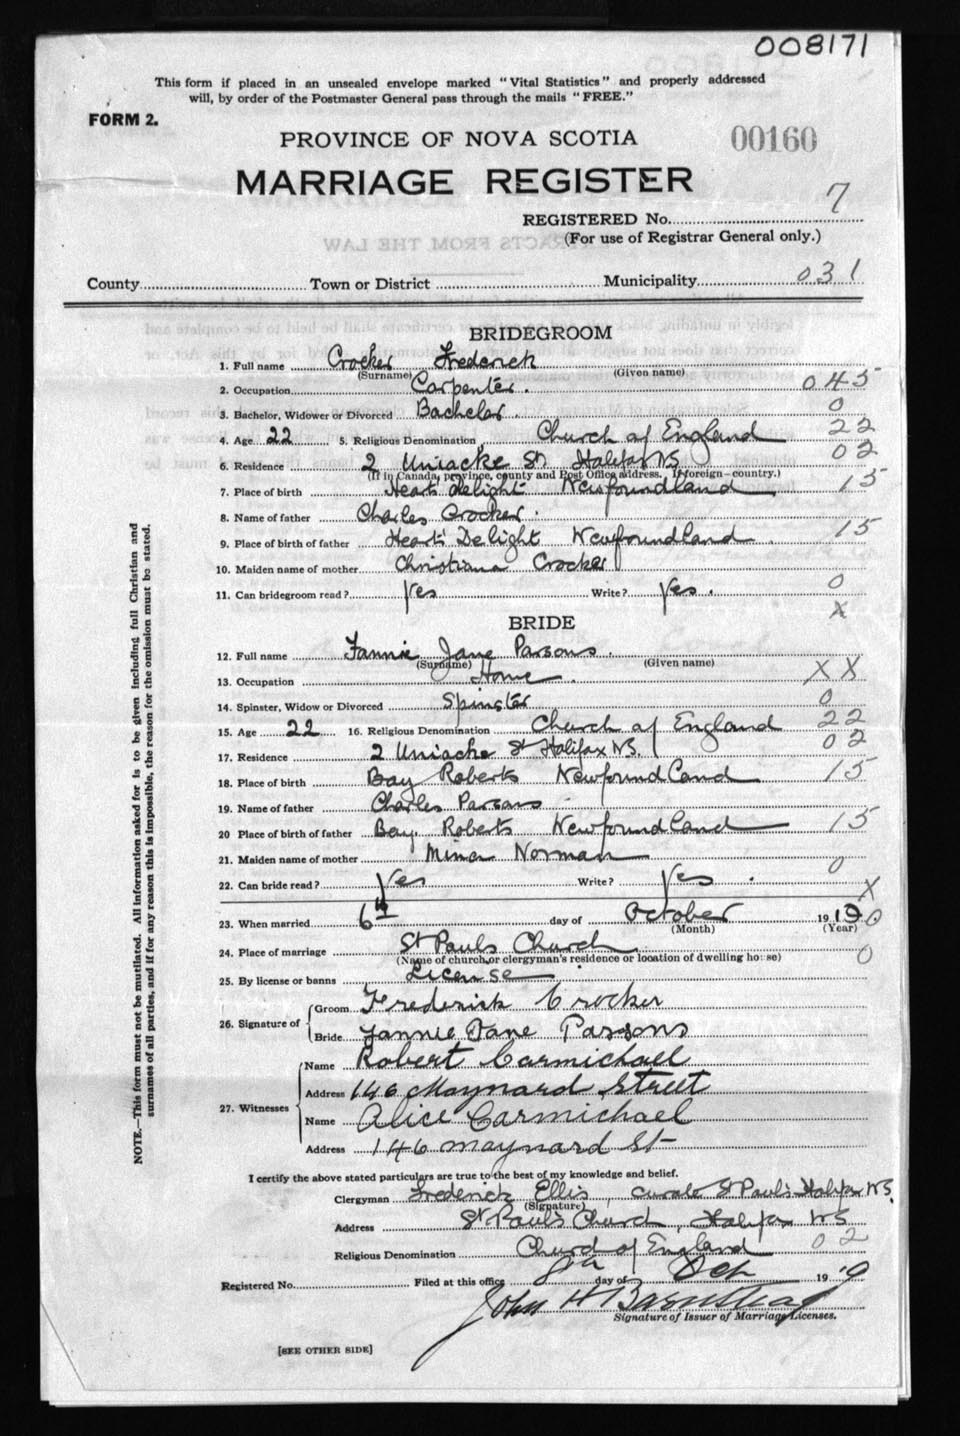 008171
This form if placed in an unsealed envelope marked "Vital Statistics" and properly addressed
will, by order of the Postmaster General pass through the mails "FREE."
FORM 2.
PROVINCE OF NOVA SCOTIA
00160
MARRIAGE REGISTER
REGISTERED No. 7
(For use of Registrar General only.)
County Town or District Municipality 031
BRIDEGROOM
1. Full name Crocker Frederick
(Surname) (Given name)
2. Occupation Carpenter. 045
3. Bachelor, Widower or Divorced Bachelor. 0
4. Age 22 5. Religious Denomination Church of England 22
6. Residence 2 Uniacke St Halifax NS 02
(If in Canada, province, county and Post Office address. If foreign—country.)
7. Place of birth Hearts Delight Newfoundland 15
8. Name of father Charles Crocker.
9. Place of birth of father Hearts Delight Newfoundland. 15
10. Maiden name of mother Christiana Crocker
11. Can bridegroom read? Yes Write? Yes. 0
X
BRIDE
12. Full name Fannie Jane Parsons.
(Surname) (Given name)
13. Occupation Home. XX
14. Spinster, Widow or Divorced Spinster 0
15. Age 22 16. Religious Denomination Church of England 22
17. Residence 2 Uniacke St Halifax NS. 02
18. Place of birth Bay Roberts Newfoundland 15
19. Name of father Charles Parsons
20 Place of birth of father Bay Roberts Newfoundland 15
21. Maiden name of mother Mina Norman
22. Can bride read? Yes Write? Yes. 0
X
23. When married 6th day of October 1919 0
(Month) (Year)
24. Place of marriage St Pauls Church 0
(Name of church, or clergyman's residence or location of dwelling house)
25. By license or banns License
26. Signature of Groom Frederick Crocker
Bride Fannie Jane Parsons
27. Witnesses Name Robert Carmichael
Address 146 Maynard Street
Name Alice Carmichael
Address 146 Maynard St
I certify the above stated particulars are true to the best of my knowledge and belief.
Clergyman Frederick Ellis, curate St Pauls Halifax NS.
(Signature)
Address St Paul's Church, Halifax NS
Religious Denomination Church of England 02
Registered No. Filed at this office 8th day of Oct 1919
John H Barnstead
Signature of Issuer of Marriage Licenses.
[SEE OTHER SIDE]
NOTE.—This form must not be mutilated. All information asked for is to be given including full Christian and
surnames of all parties, and if for any reason this is impossible, the reason for the omission must be stated.